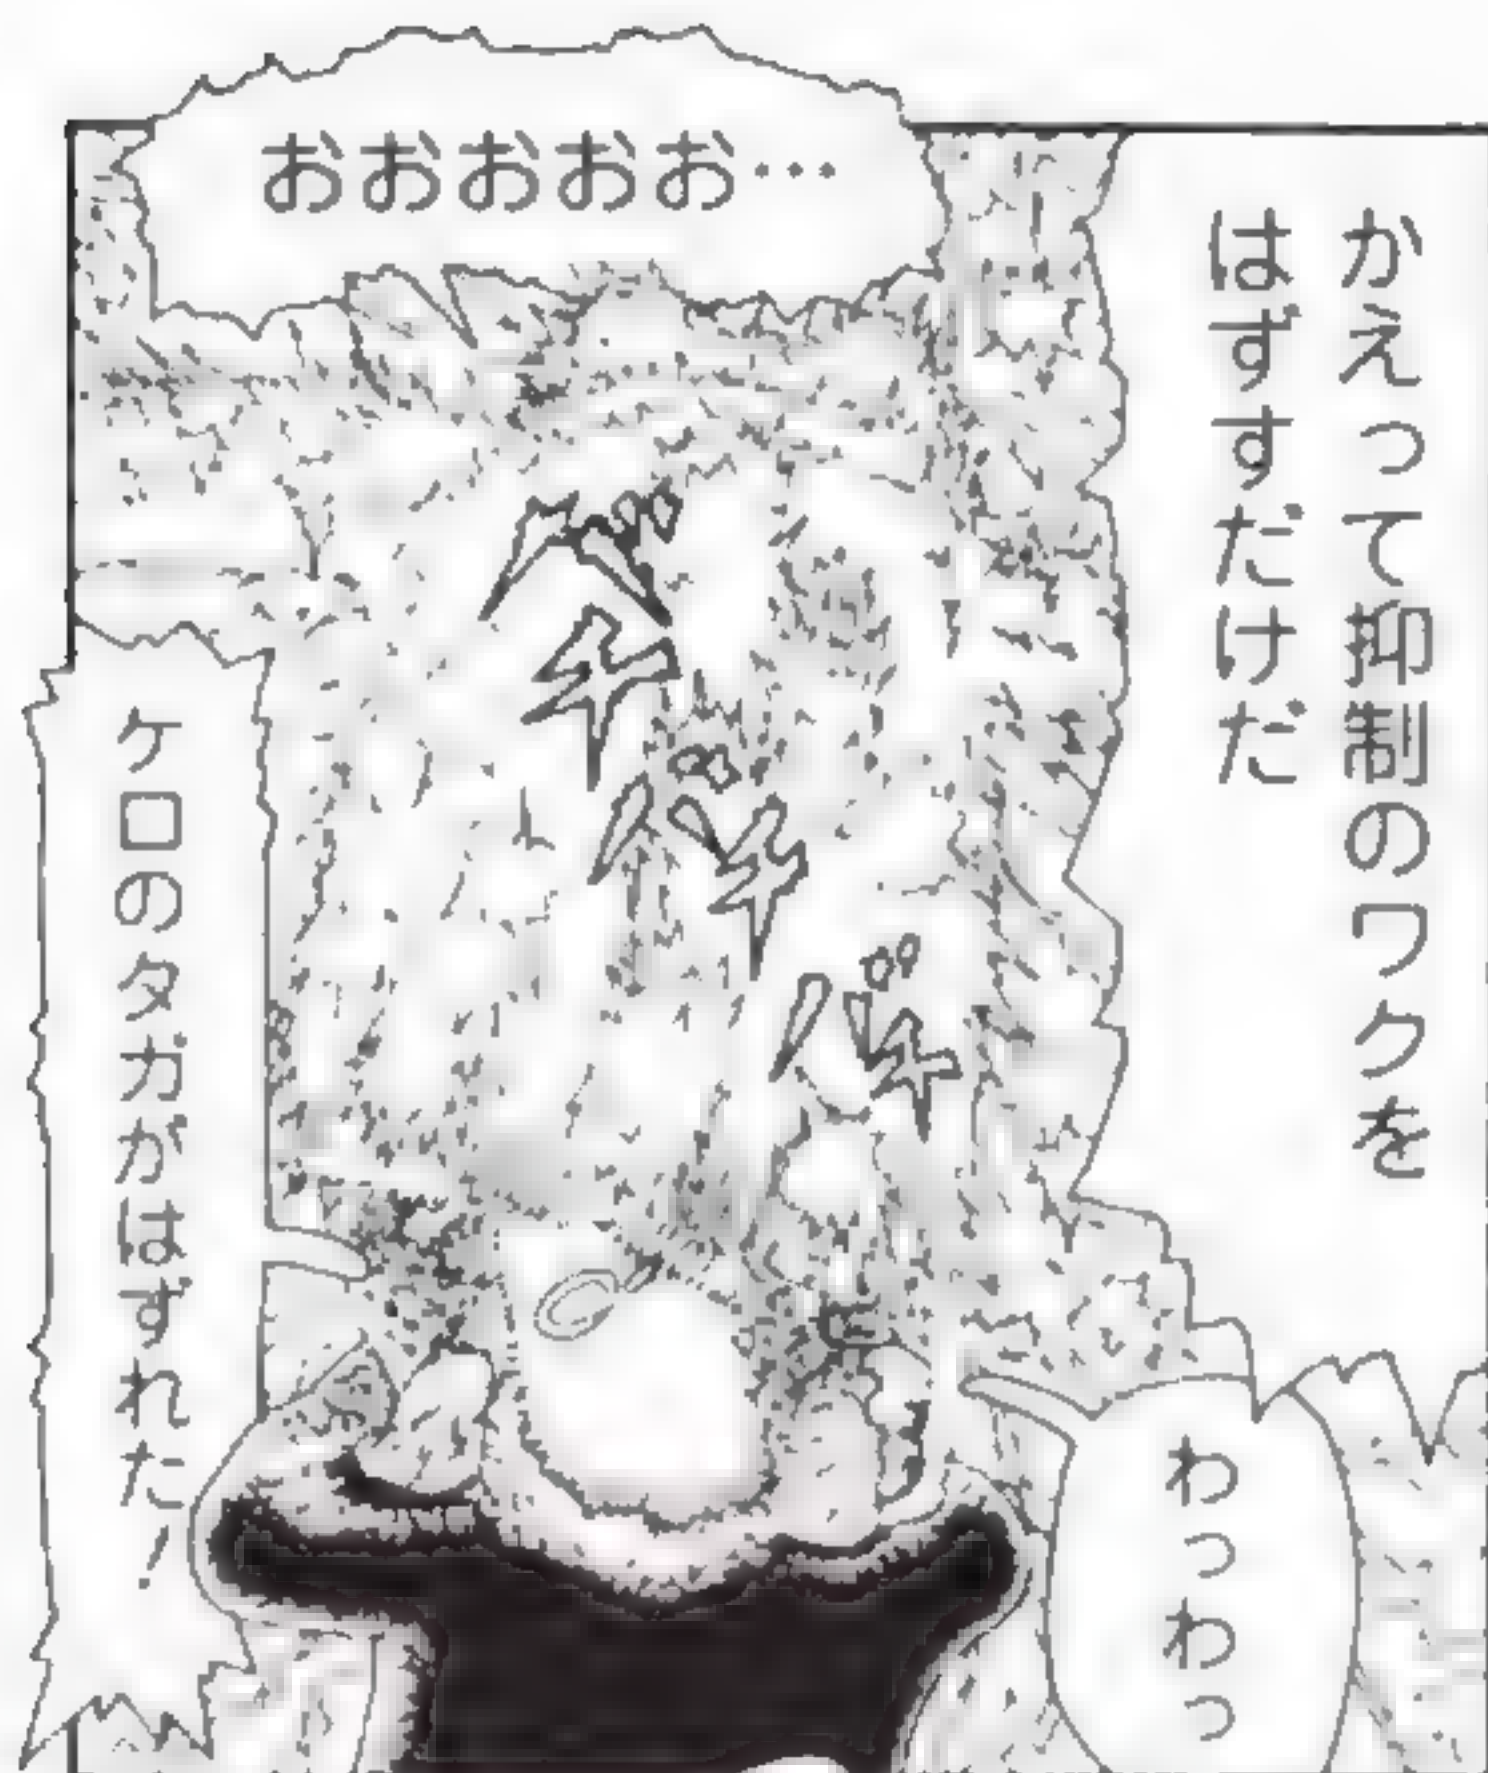 かえって抑制のワクを
はずすだけだ
おおおおお…
バキ
バキ
バキ
わっわっ
ケロのタガがはずれた!